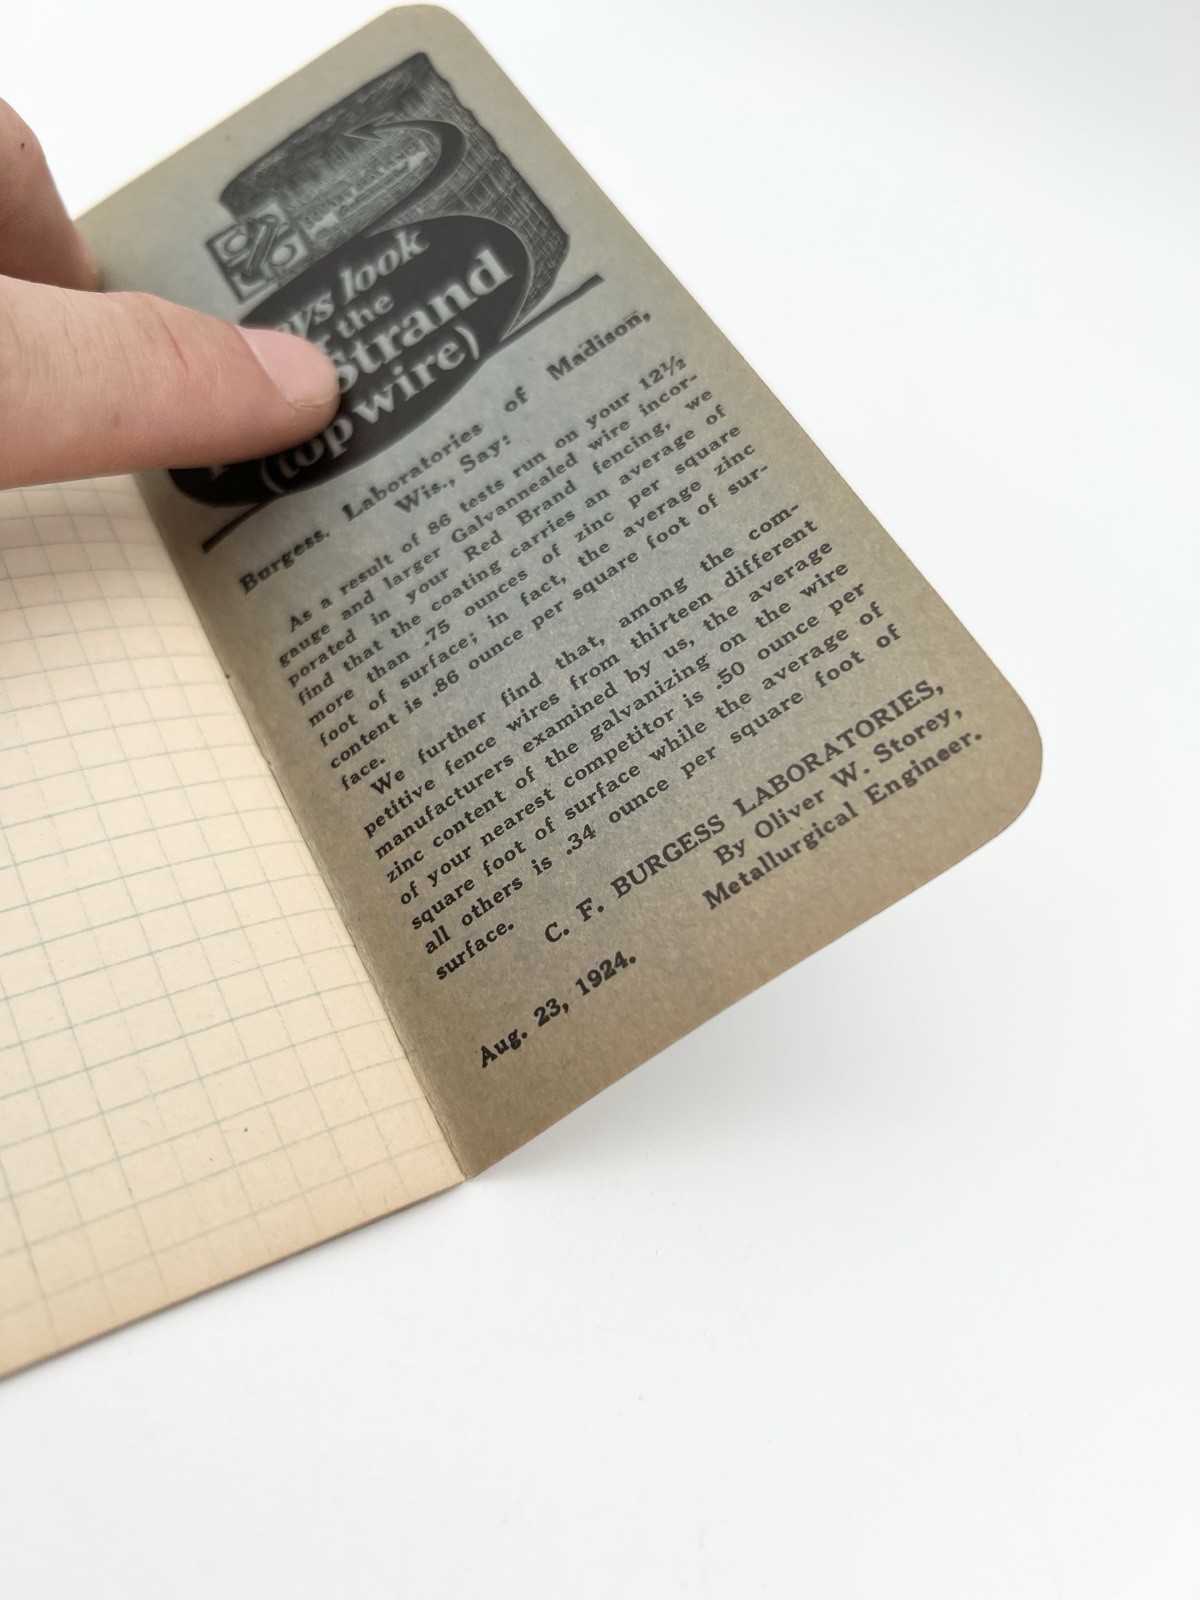 look
the
Strand
(top wire)
Burgess. Laboratories of Madison,
Wis., Say:
As a result of 86 tests run on your 12½
gauge and larger Galvannealed wire incor-
porated in your Red Brand fencing, we
find that the coating carries an average of
more than .75 ounces of zinc per square
foot of surface; in fact, the average zinc
content is .86 ounce per square foot of sur-
face.
We further find that, among the com-
petitive fence wires from thirteen different
manufacturers examined by us, the average
zinc content of the galvanizing on the wire
of your nearest competitor is .50 ounce per
square foot of surface while the average of
all others is .34 ounce per square foot of
surface.
C. F. BURGESS LABORATORIES,
By Oliver W. Storey,
Metallurgical Engineer.
Aug. 23, 1924.